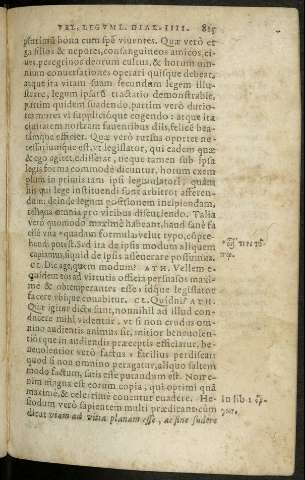 VEL LEGVM. DIAL. IIII. 815
plurima bona cum spe viuentes. Quæ verò er
ga filios & nepotes, consanguineos amicos, ci
ues, peregrinos deorum cultus, & horum om-
nium conuersationes operari quisque debeat,
atque ita vitam suam secundum legem illu-
strare, legum ipsarum tractatio demonstrabit,
partim quidem suadendo, partim verò durio-
res mores vi suppliciisque cogendo: atque ita
ciuitatem nostram fauentibus diis, felicē bea-
tamque efficiet. Quæ verò rursus oportet ne-
cessariumque est, vt legislator, qui eadem quæ
& ego agitet, edisserat, neque tamen sub ipsa
legis forma commodè dicuntur, horum exem
plum in primis tam ipsi legumlatori, quàm
his qui lege instituendi sunt arbitror afferen-
dum: deinde legum positionem incipiendam,
reliqua omnia pro viribus discutiendo. Talia
verò quomodo maximè habeant, haud sanè fa
esse vna quadam formula velut typo, cōpre-
hendi potest. Sed ita de ipsis modum aliquem
capiamus, siquid de ipsis asseuerare possumus.
CL. Dic age, quem modum? ATH. Vellem e-
quidem eos ad virtutis officia persuasos maxi-
mè & obtemperantes esse: idque legislator
facere vbique conabitur. CL. Quidni? ATH.
Quæ igitur dicta sunt, nonnihil ad illud con-
ducere mihi videntur, vt si non crudus om-
nino audientis animus sit, mitior beneuolen-
tiorque in audiendis præceptis efficiatur. be-
neuolentior verò factus facilius perdiscat:
quod si non omnino peragatur, aliquo saltem
modo factum, satis esse putandum est. Non e-
nim magna est eorum copia, qui optimi quā
maximè, & celerrimè conentur euadere. He-
siodum verò sapientem multi prædicant: cùm
dicat viam ad vitia planam esse, ac sine sudore
In lib. 1